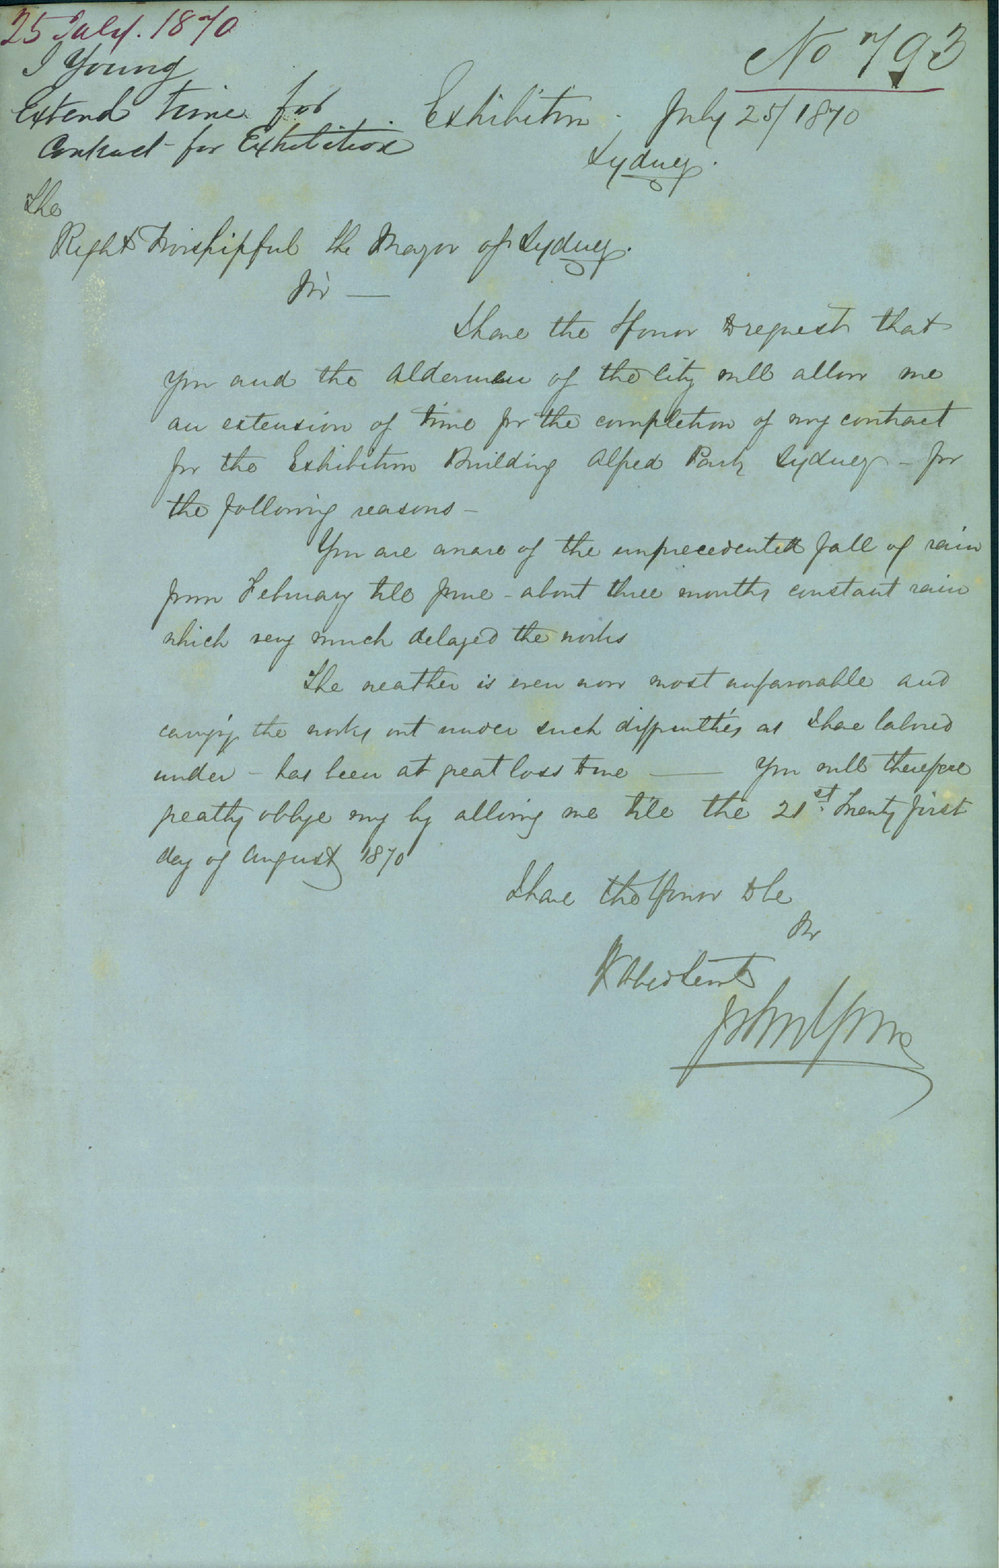 25 July. 1870
No 793
J Young
Extend time for
Contract for Exhibition
Exhibition, July 25/1870
Sydney.
The
Right Worshipful the Mayor of Sydney.
Sir —
I have the Honor to request that
you and the Aldermen of the City will allow me
an extension of time for the completion of my contract
for the Exhibition Building Alfred Park Sydney – for
the following reasons –
You are aware of the unprecedented fall of rain
from February till June – about three months constant rain
which very much delayed the works
The weather is even now most unfavorable and
carryg the works out under such difficulties as I have labored
under – has been at great loss to me — You will therefore
greatly oblige my by allowing me till the 21st Twenty first
day of August 1870
I have the Honor to be
Sir
Yr Obed Servt
John Young